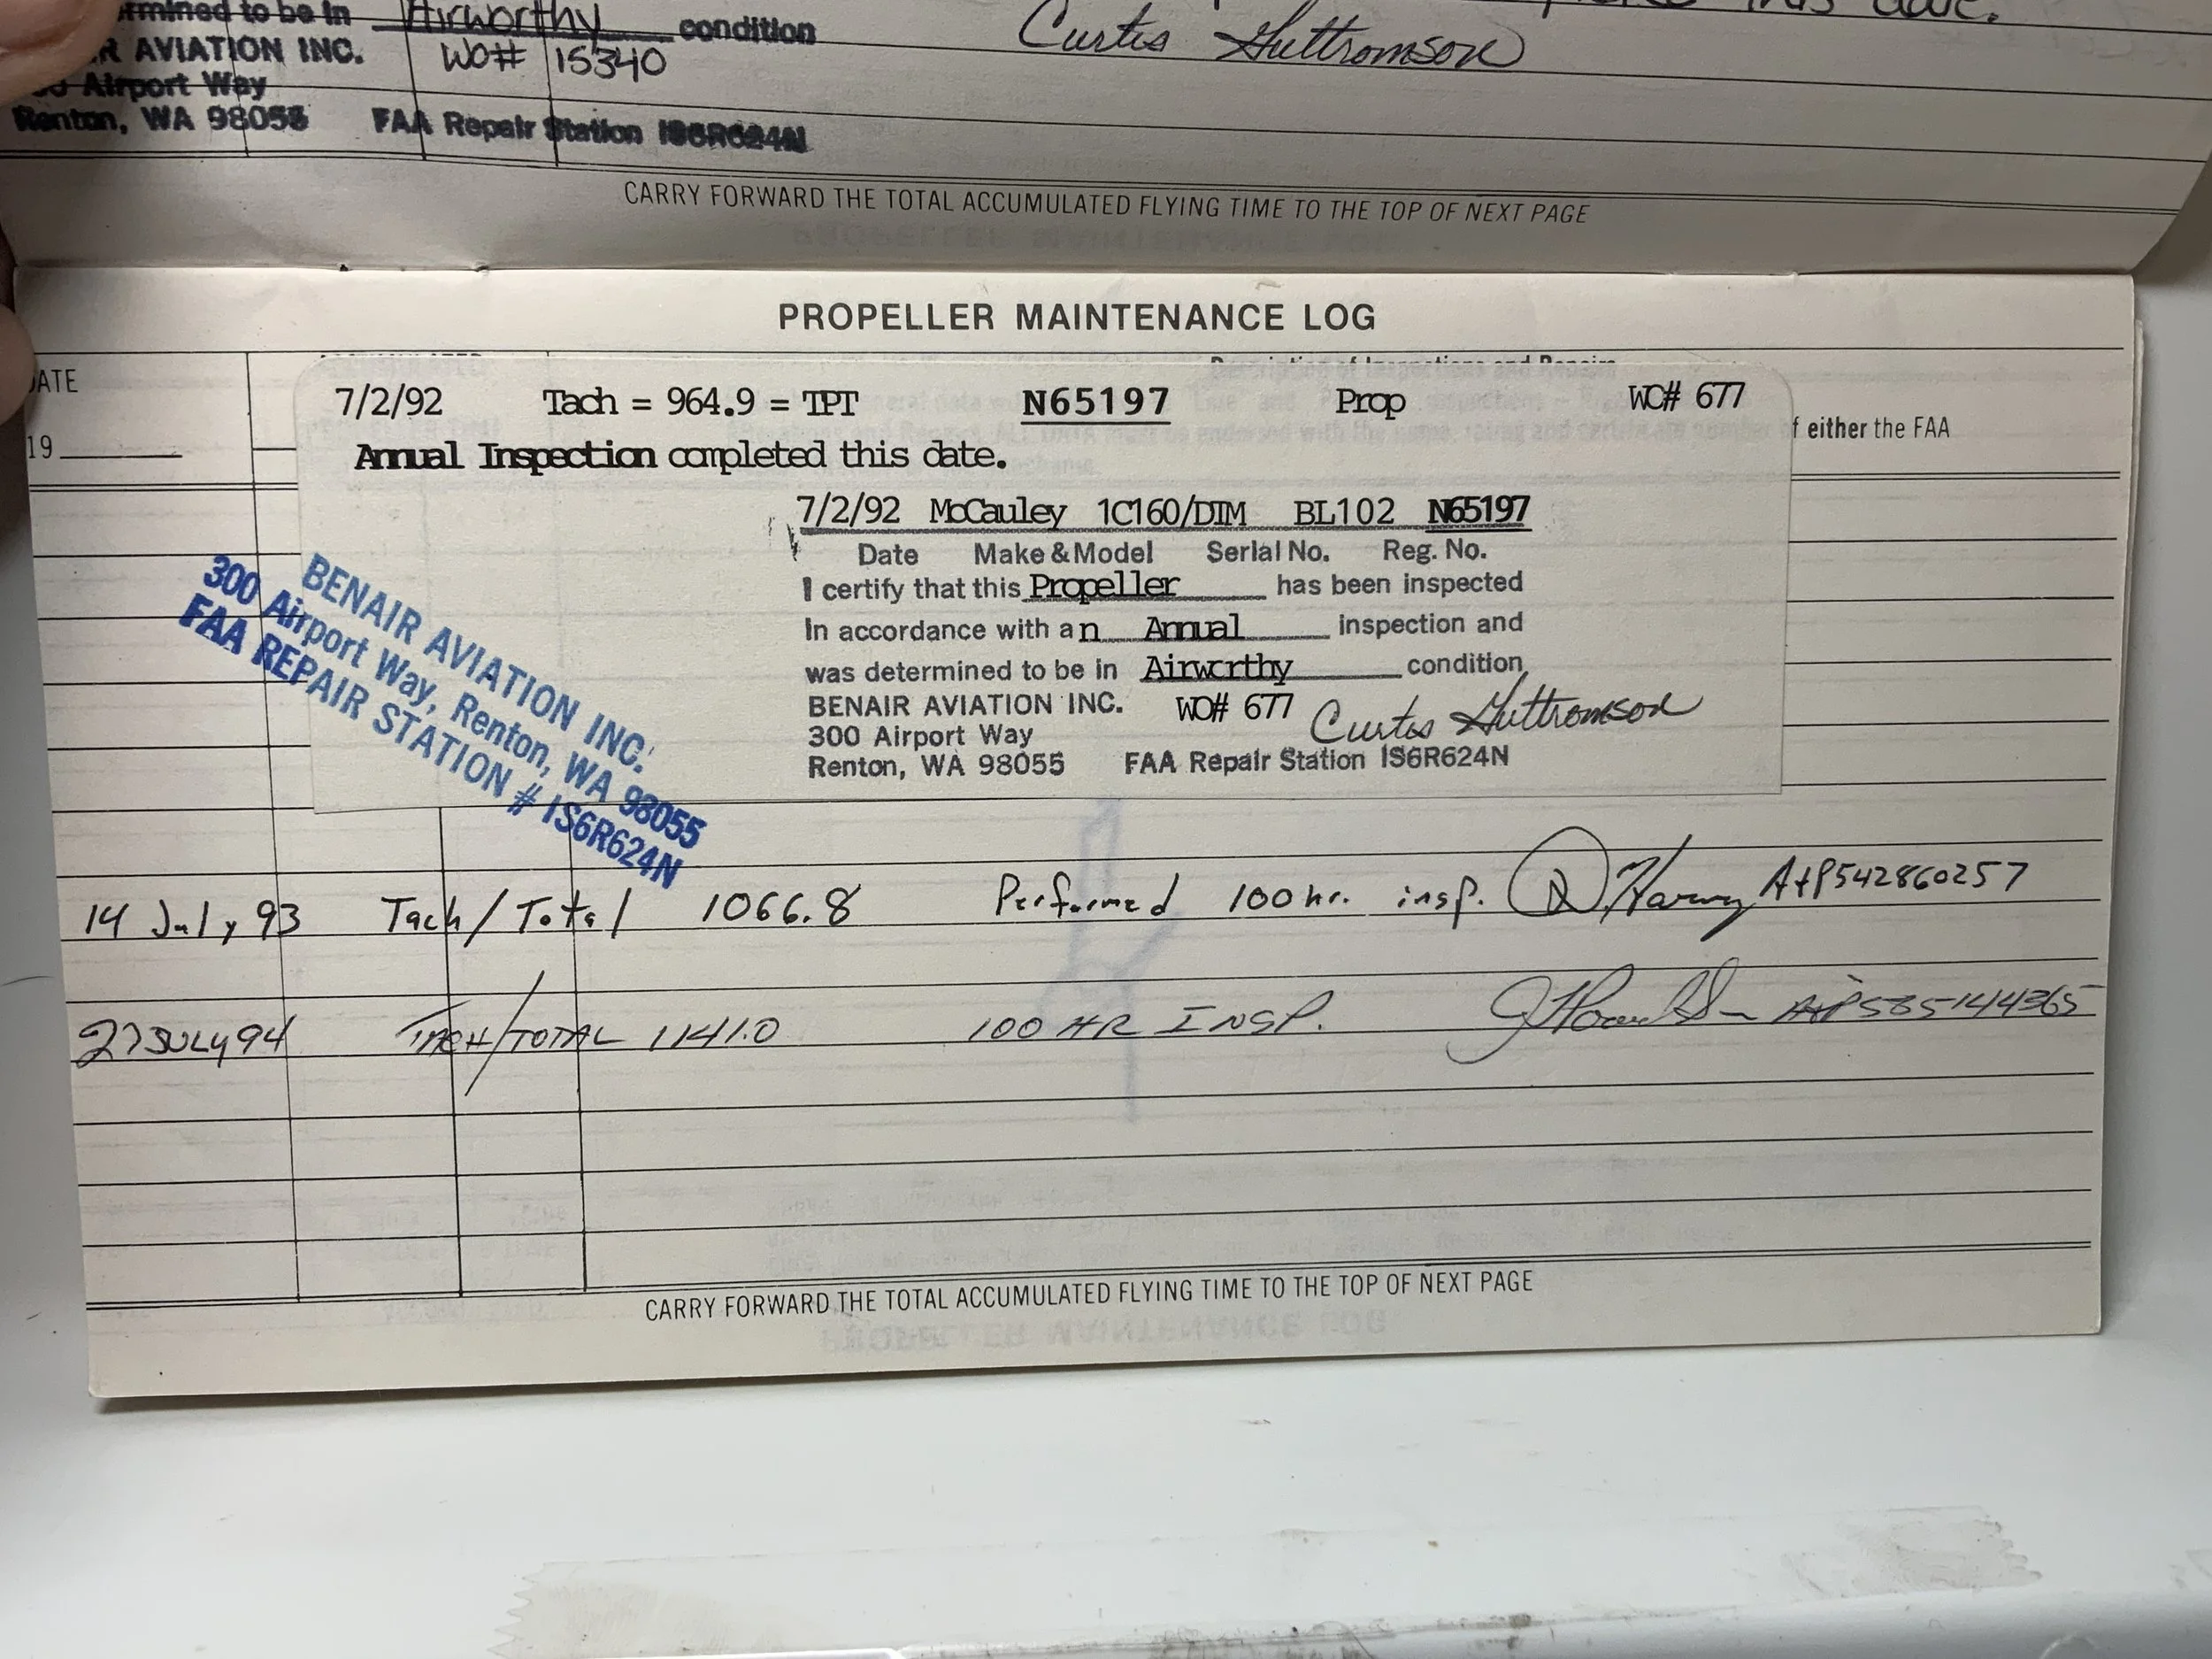 rmined to be in Airworthy condition
R AVIATION INC. WO# 15340
Airport Way
Renton, WA 98055 FAA Repair Station IS6R624N
this date.
Curtis Guttromson
CARRY FORWARD THE TOTAL ACCUMULATED FLYING TIME TO THE TOP OF NEXT PAGE
PROPELLER MAINTENANCE LOG
ATE
19
Description of Inspections and Repairs
7/2/92 Tach = 964.9 = TPT N65197 Prop WO# 677
f either the FAA
Annual Inspection completed this date.
7/2/92 McCauley 1C160/DIM BL102 N65197
Date Make & Model Serial No. Reg. No.
I certify that this Propeller has been inspected
In accordance with an Annual inspection and
was determined to be in Airworthy condition
BENAIR AVIATION INC. WO# 677 Curtis Guttromson
300 Airport Way
Renton, WA 98055 FAA Repair Station IS6R624N
BENAIR AVIATION INC.
300 Airport Way, Renton, WA 98055
FAA REPAIR STATION # IS6R624N
14 July 93 Tach/Total 1066.8 Performed 100 hr. insp. D Harvey A+P542860257
27 JULY 94 TACH/TOTAL 1141.0 100 HR INSP. A+P585144365
CARRY FORWARD THE TOTAL ACCUMULATED FLYING TIME TO THE TOP OF NEXT PAGE